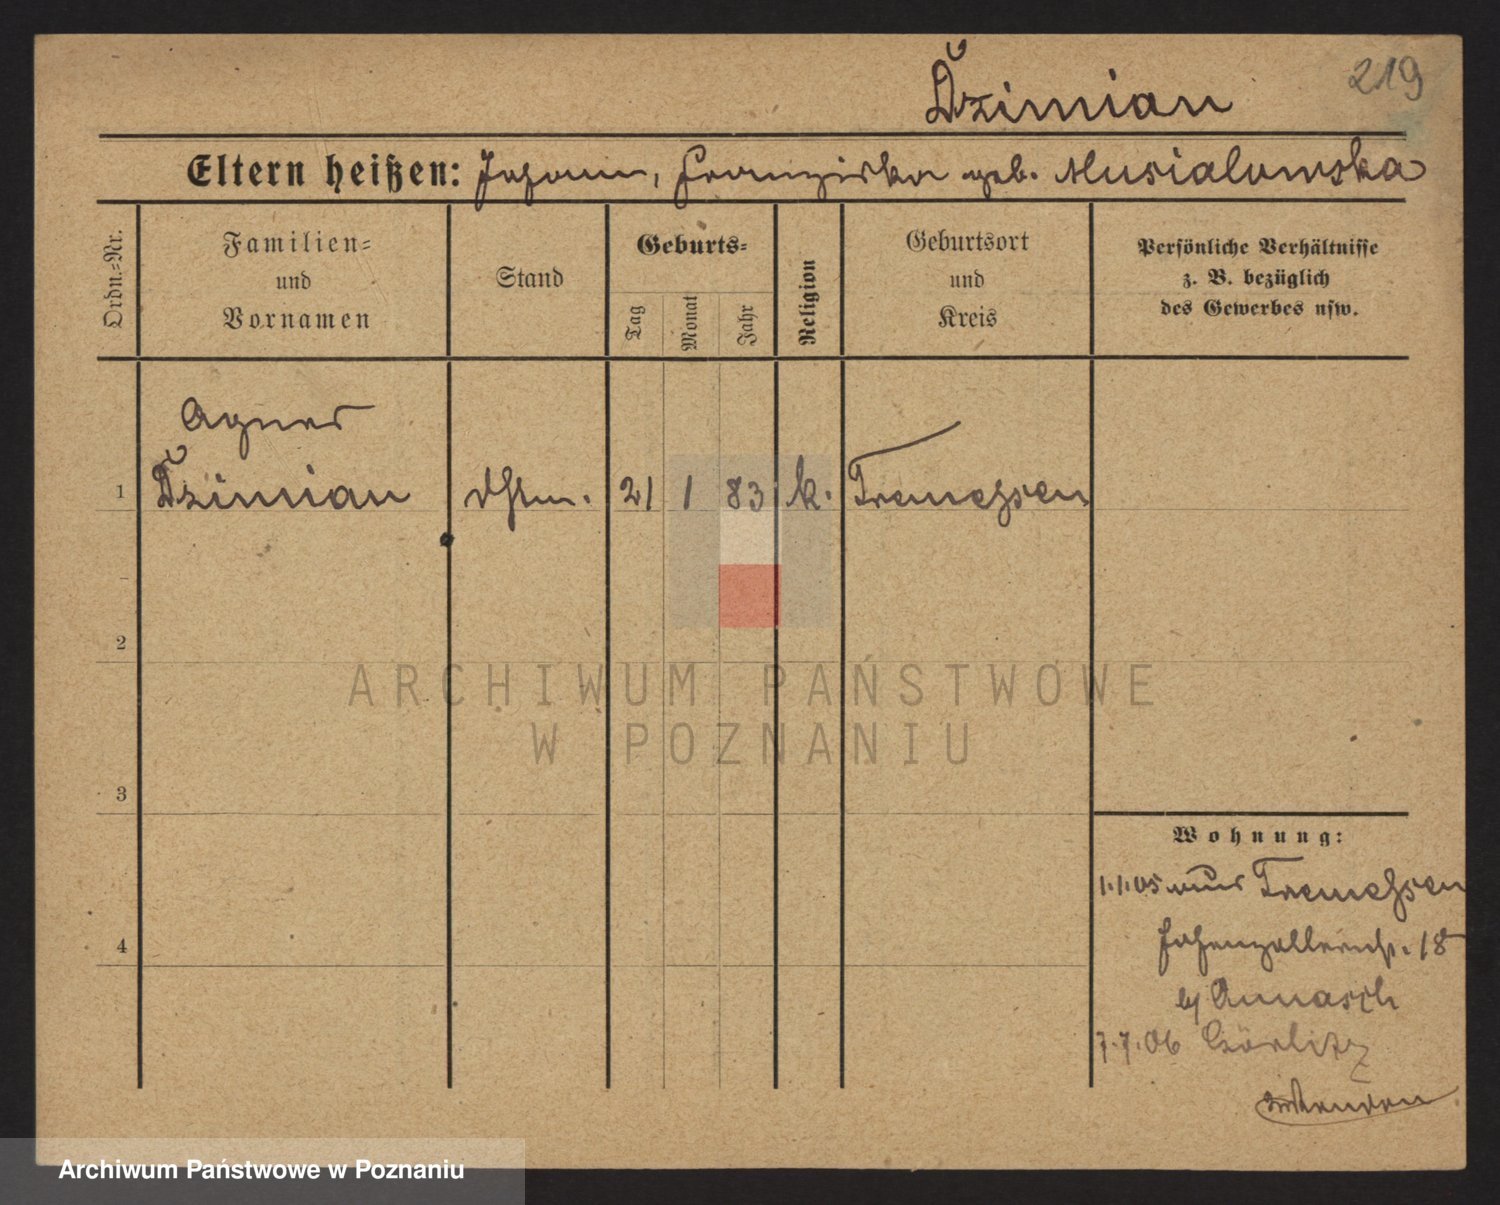 219
Dzimian
Eltern heißen: Johann, Franziska geb. Musialowska
Ordn.-Nr.
Familien-
und
Vornamen
Stand
Geburts-
Tag
Monat
Jahr
Religion
Geburtsort
und
Kreis
Persönliche Verhältnisse
z. B. bezüglich
des Gewerbes usw.
Agnes
1 Dzimian 21 1 83 k. Tremessen
2
3
4
ARCHIWUM PAŃSTWOWE
W POZNANIU
Wohnung:
1.1.05 aus Tremessen
Hohenzollernstr. 18
7.7.06 Görlitz
Archiwum Państwowe w Poznaniu